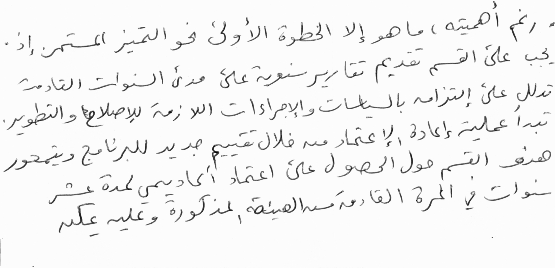 ، رغم أهميته، ما هو إلا الخطوة الأولى نحو التميز المستمر. إذ.
يجب على القسم تقديم تقارير سنوية على مدى السنوات القادمة
تدلل على إلتزامه بالسياسات والإجراءات اللازمة للإصلاح والتطوير.
تبدأ عملية إعادة الإعتماد من خلال تقييم جديد للبرنامج ويتمحور
هدف القسم حول الحصول على اعتماد أكاديمي لمدة عشر
سنوات في المرة القادمة من الهيئة المذكورة وعليه يمكن